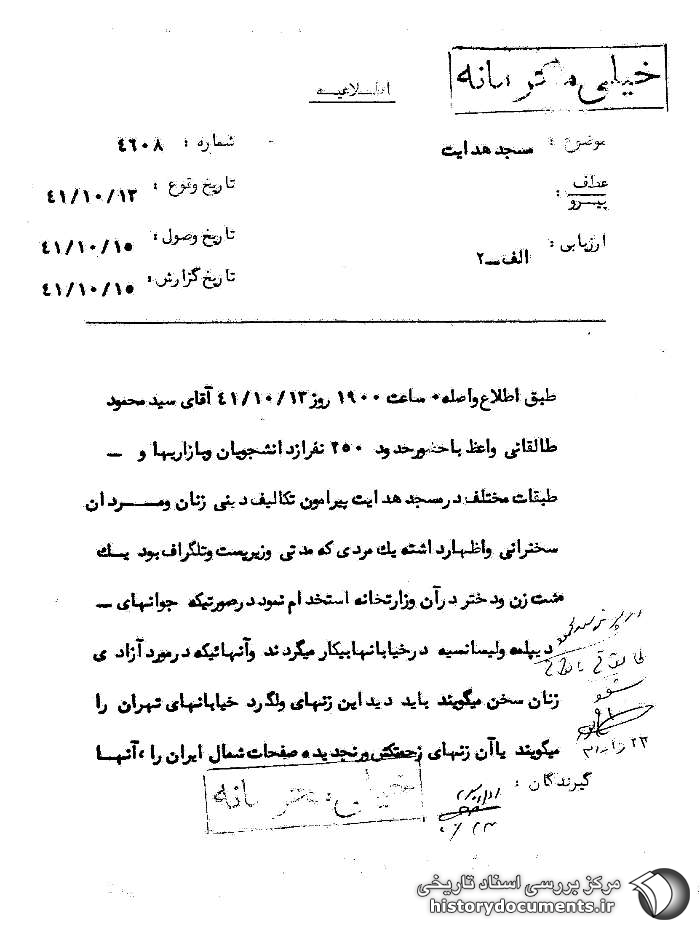 خیلی محرمانه
اطلاعیه
موضوع : مسجد هدایت
شماره : ٤٦٠٨
عطف
پیرو :
تاریخ وقوع : ٤١/١٠/١٣
ارزیابی : الف ــ ٢
تاریخ وصول : ٤١/١٠/١٥
تاریخ گزارش : ٤١/١٠/١٥
طبق اطلاع واصله ساعت ١٩٠٠ روز ٤١/١٠/١٣ آقای سید محمود
طالقانی واعظ با حضور حدود ٢٥٠ نفر از دانشجویان و بازاریها و ــ
طبقات مختلف در مسجد هدایت پیرامون تکالیف دینی زنان و مــردان
سخنرانی و اظهار داشته یك مردی که مدتی وزیر پست و تلگراف بود یــك
مشت زن و دختر در آن وزارتخانه استخدام نمود در صورتیکه جوانهای ــ
دیپلمه و لیسانسیه در خیابانها بیکار میگردند و آنهائیکه در مورد آزادی
زنان سخن میگویند باید دید این زنهای ولگرد خیابانهای تهران را
میگویند یا آن زنهای زحمتکش و رنجدیده صفحات شمال ایران را ، آنهــا
گیرندگان :
خیلی محرمانه
مرکز بررسی اسناد تاریخی
historydocuments.ir